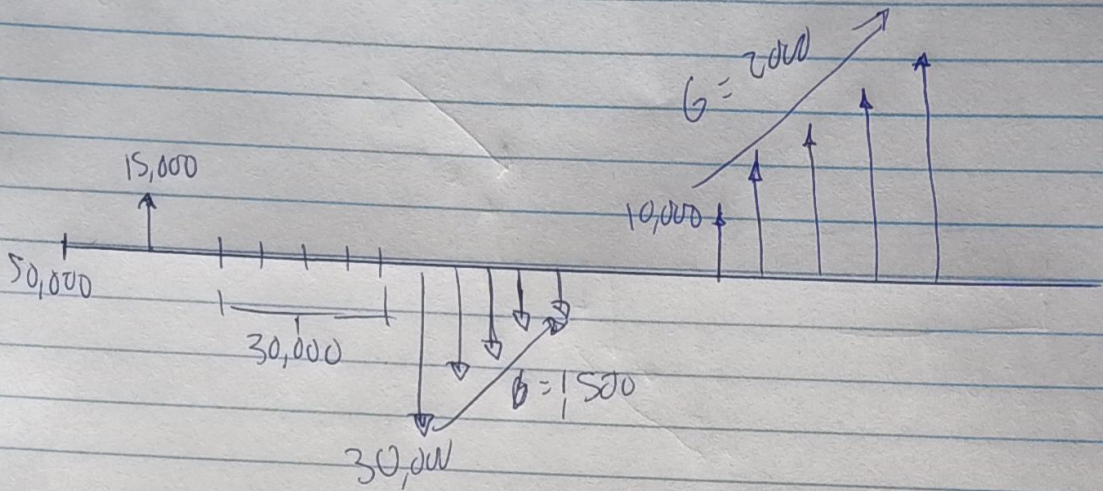 G = 2000
15,000
10,000
50,000
30,000
G = 1500
30,000